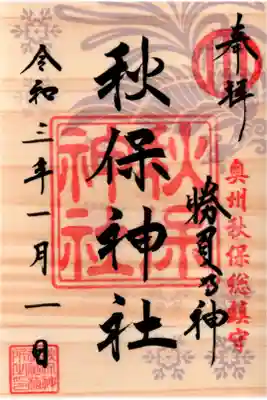 奉拝
奥州秋保総鎮守
勝負の神
秋保神社
秋保神社
令和三年一月一日